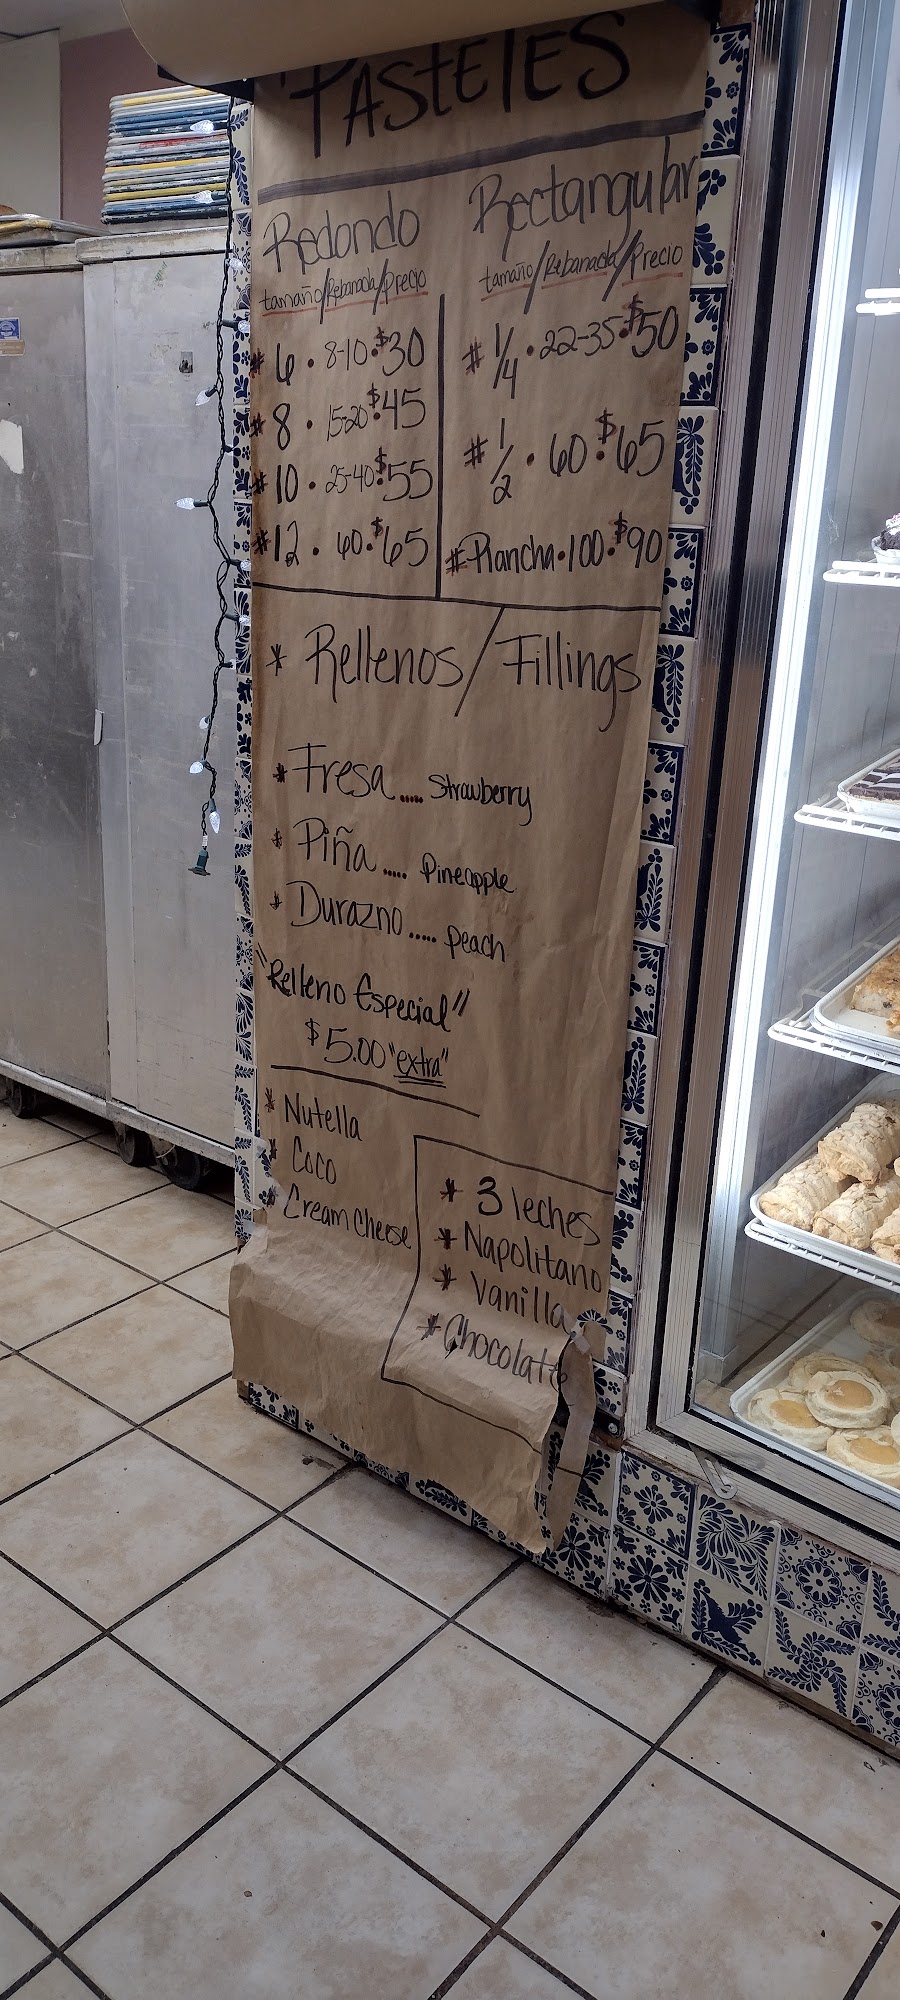 PASTELES
Redondo
tamaño/Rebanada/Precio
# 6 • 8-10 • $30
# 8 • 15-20 • $45
# 10 • 25-40 • $55
# 12 • 60 • $65
Rectangular
tamaño/Rebanada/Precio
# 1/4 • 22-35 • $50
# 1/2 • 60 • $65
# Plancha • 100 • $90
* Rellenos/Fillings
* Fresa ..... Strawberry
* Piña ..... Pineapple
* Durazno ..... peach
"Relleno Especial"
$5.00 "extra"
* Nutella
* Coco
* Cream Cheese
* 3 leches
* Napolitano
* Vanilla
* Chocolate